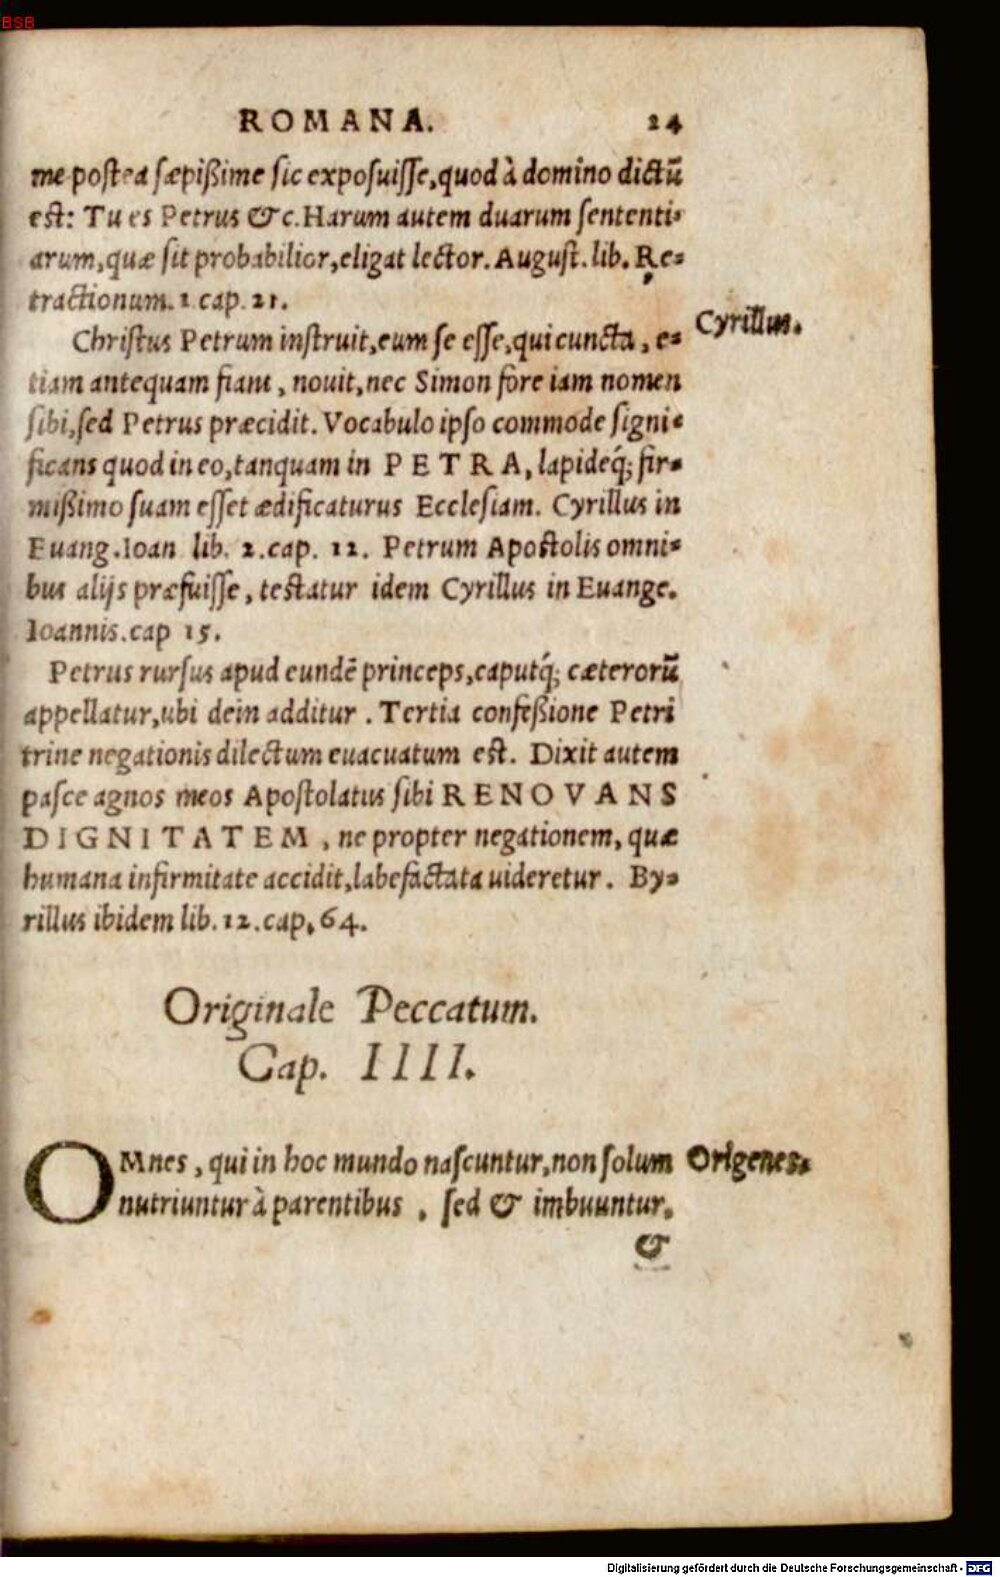 BSB
ROMANA. 24
me postea sæpißime sic exposuisse, quod à domino dictũ
est: Tu es Petrus &c. Harum autem duarum sententi-
arum, quæ sit probabilior, eligat lector. August. lib. Re-
tractionum. 1 cap. 21.
Christus Petrum instruit, eum se esse, qui cuncta, e- Cyrillus.
tiam antequam fiant, nouit, nec Simon fore iam nomen
sibi, sed Petrus præcidit. Vocabulo ipso commode signi-
ficans quod in eo, tanquam in PETRA, lapideq́; fir-
mißimo suam esset ædificaturus Ecclesiam. Cyrillus in
Euang. Ioan lib. 2. cap. 12. Petrum Apostolis omni-
bus alijs præfuisse, testatur idem Cyrillus in Euange.
Ioannis. cap 15.
Petrus rursus apud eundẽ princeps, caputq́; cæterorũ
appellatur, ubi dein additur. Tertia confeßione Petri
trine negationis dilectum euacuatum est. Dixit autem
pasce agnos meos Apostolatus sibi RENOVANS
DIGNITATEM, ne propter negationem, quæ
humana infirmitate accidit, labefactata uideretur. By-
rillus ibidem lib. 12. cap. 64.
Originale Peccatum.
Cap. IIII.
OMnes, qui in hoc mundo nascuntur, non solum Origenes.
nutriuntur à parentibus, sed & imbuuntur.
&
Digitalisierung gefördert durch die Deutsche Forschungsgemeinschaft - DFG